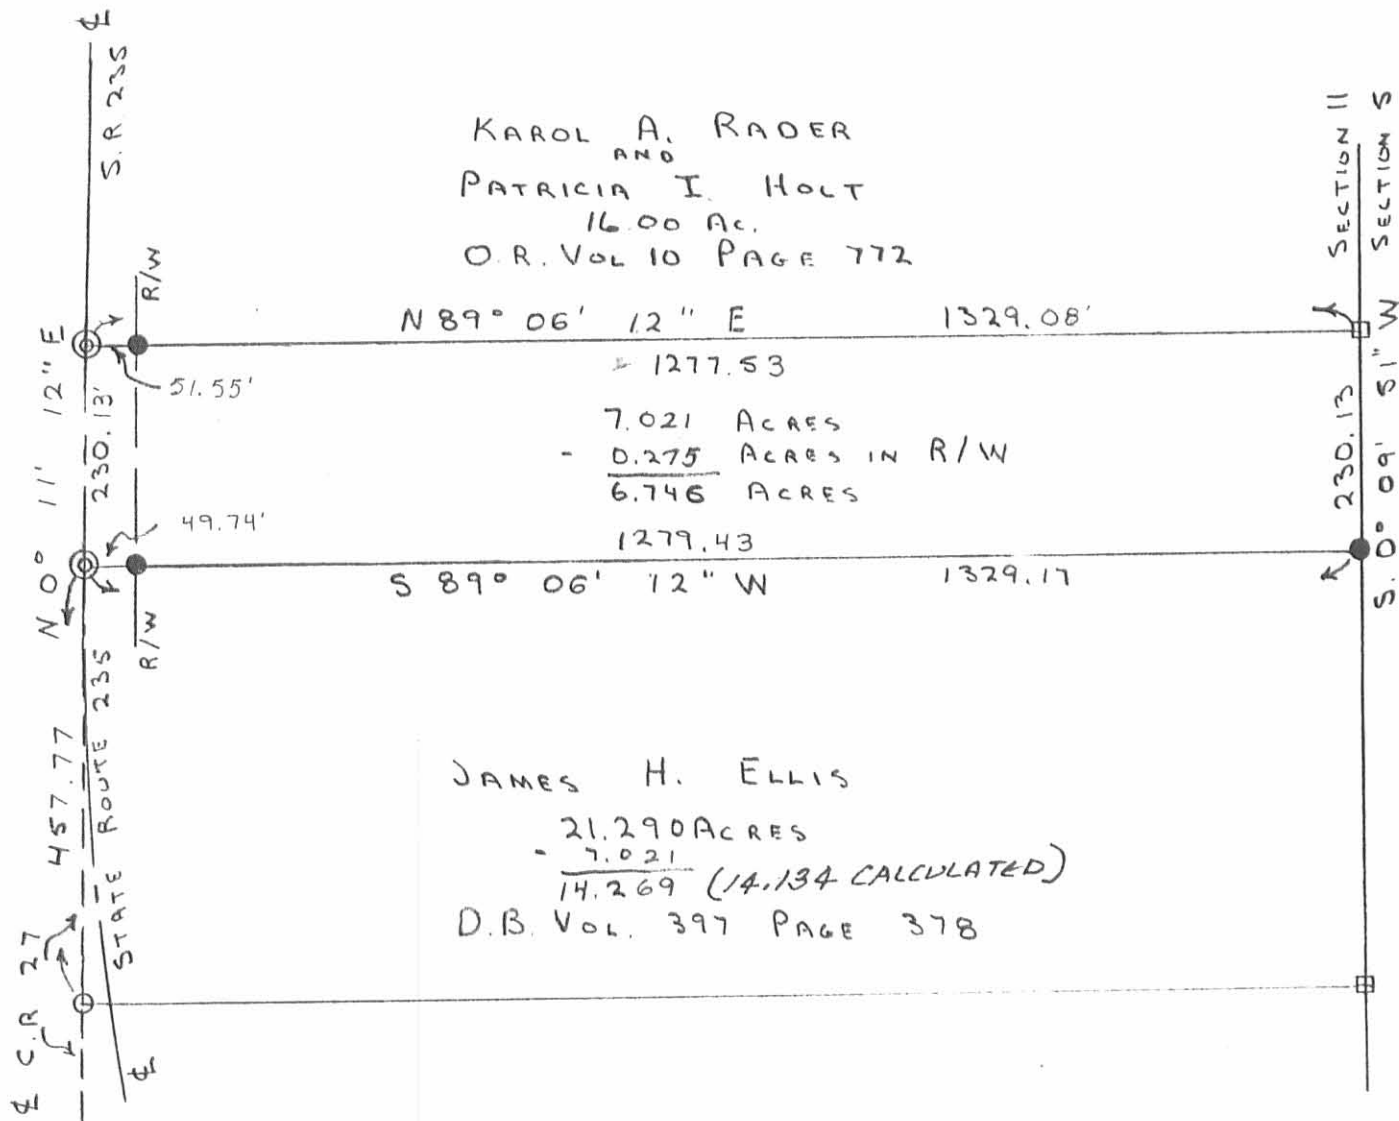 ℄
S.R 235
KAROL A. RADER
AND
PATRICIA I. HOLT
16.00 AC.
O.R. VOL 10 PAGE 772
SECTION 11
SECTION 5
R/W
N 89° 06' 12" E 1329.08'
1277.53
51.55'
7.021 ACRES
- 0.275 ACRES IN R/W
6.746 ACRES
N 0° 11' 12" E
230.13'
230.13
S. 0° 09' 51" W
49.74'
1279.43
S 89° 06' 12" W 1329.17
R/W
STATE ROUTE 235
457.77
JAMES H. ELLIS
21.290 ACRES
- 7.021
14.269 (14.134 CALCULATED)
D.B. VOL. 397 PAGE 378
℄ C.R 27
℄